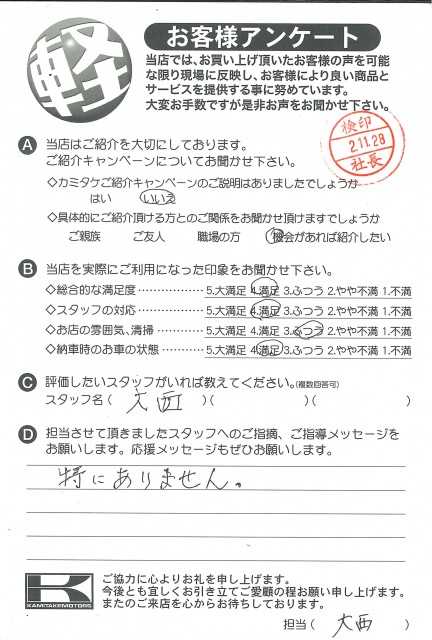 軽
お客様アンケート
当店では、お買い上げ頂いたお客様の声を可能
な限り現場に反映し、お客様により良い商品と
サービスを提供する事に努めています。
大変お手数ですが是非お声をお聞かせ下さい。
検印
2.11.28
社長
A 当店はご紹介を大切にしております。
ご紹介キャンペーンについてお聞かせ下さい。
◇カミタケご紹介キャンペーンのご説明はありましたでしょうか
はい いいえ
◇具体的にご紹介頂ける方とのご関係をお聞かせ頂けますでしょうか
ご親族 ご友人 職場の方 機会があれば紹介したい
B 当店を実際にご利用になった印象をお聞かせ下さい。
◇総合的な満足度 ……………… 5.大満足 4.満足 3.ふつう 2.やや不満 1.不満
◇スタッフの対応 ……………… 5.大満足 4.満足 3.ふつう 2.やや不満 1.不満
◇お店の雰囲気、清掃 ………… 5.大満足 4.満足 3.ふつう 2.やや不満 1.不満
◇納車時のお車の状態 ………… 5.大満足 4.満足 3.ふつう 2.やや不満 1.不満
C 評価したいスタッフがいれば教えてください。(複数回答可)
スタッフ名( 大西 )( )( )
D 担当させて頂きましたスタッフへのご指摘、ご指導メッセージを
お願いします。応援メッセージもぜひお願いします。
特にありません。
K
KAMITAKEMOTORS
ご協力に心よりお礼を申し上げます。
今後とも宜しくお引き立てご愛顧の程お願い申し上げます。
またのご来店を心からお待ちしております。
担当( 大西 )